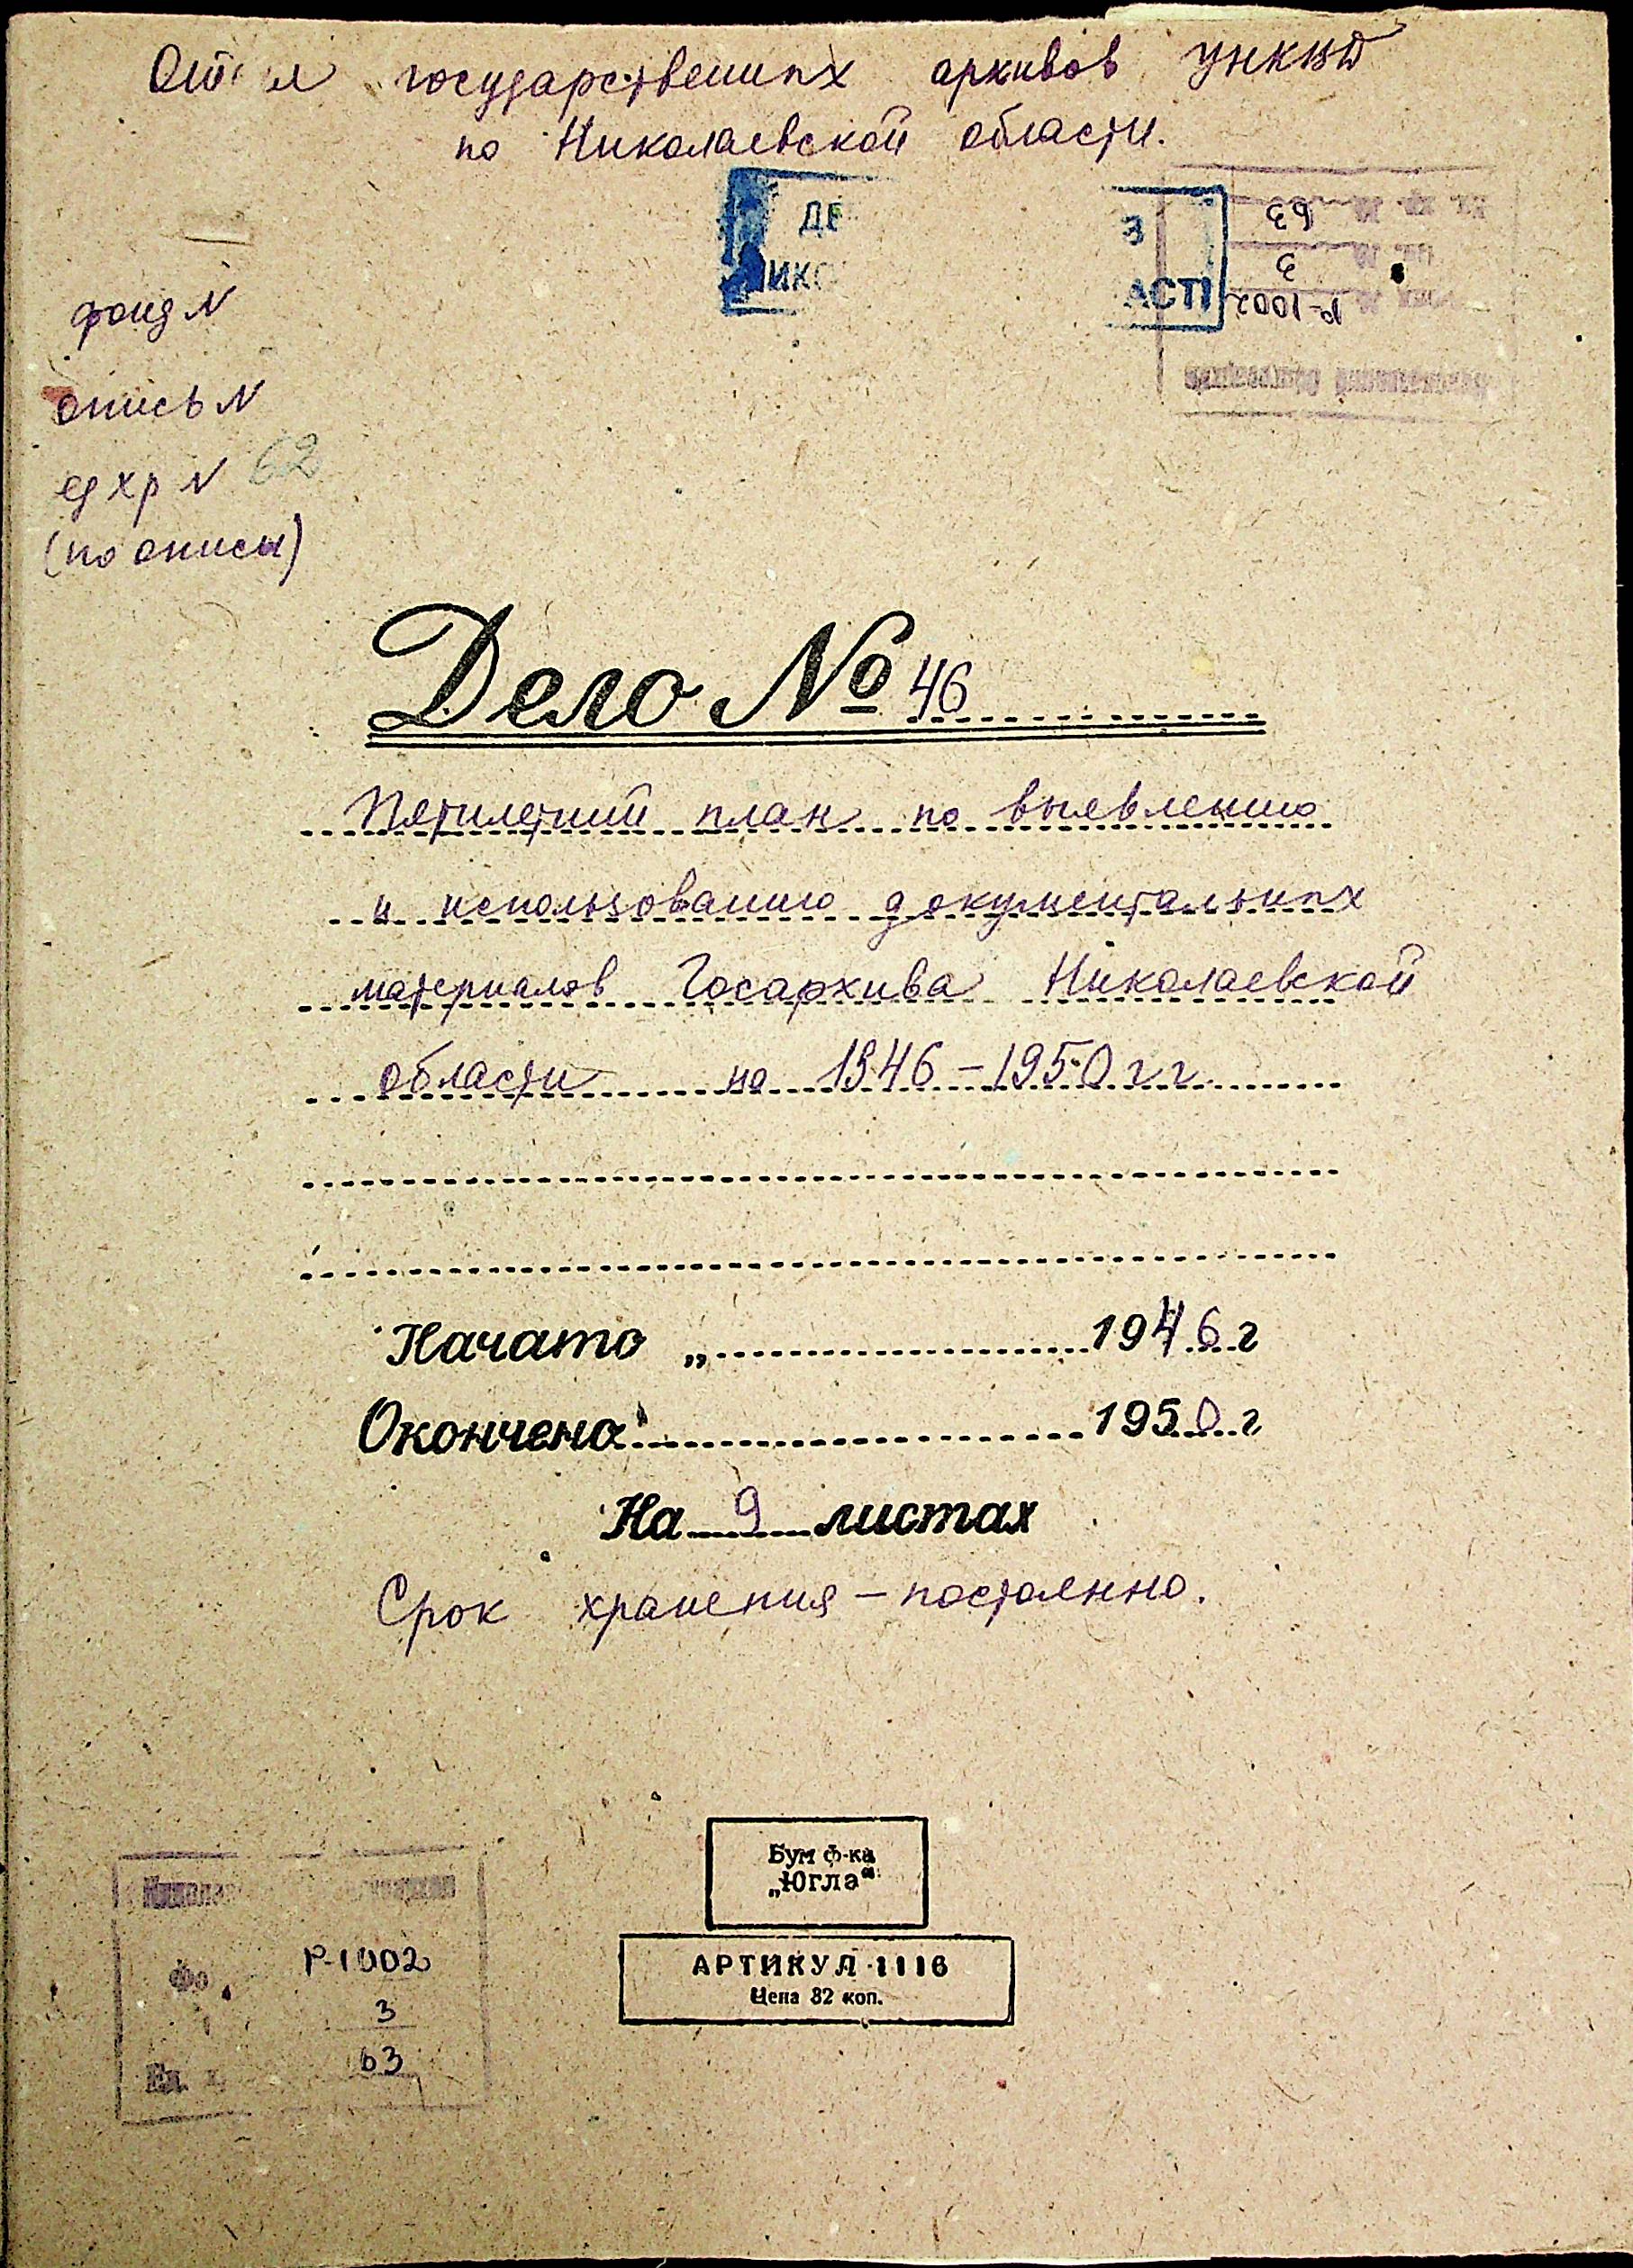 государственных архивов УНКВД
по Николаевской области.
ДЕ
З
ИКО
АСТІ
63
3
Р-1002
фонд N
опись N
ед хр N 62
(по описи)
Дело № 46
Пятилетний план по выявлению
и использованию документальных
материалов Госархива Николаевской
области на 1946-1950 г г.
Начато „ 1946 г
Окончено 1950 г
На 9 листах
Срок хранения - постоянно.
Бум ф-ка
„Югла“
АРТИКУЛ 1116
Цена 82 коп.
Фо Р-1002
3
Ед. 63